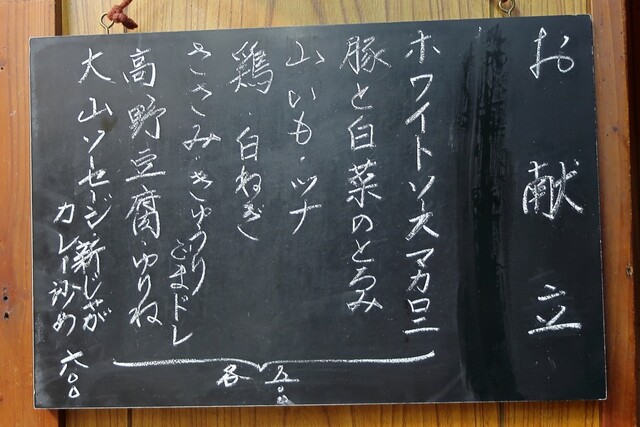 お献立
ホワイトソースマカロニ
豚と白菜のとろみ
山いも・ツナ
鶏・白ねぎ
ささみ・きゅうり
ごまドレ
高野豆腐・ゆりね
大山ソーセージ新じゃが
カレー炒め 六〇〇
各 五〇〇